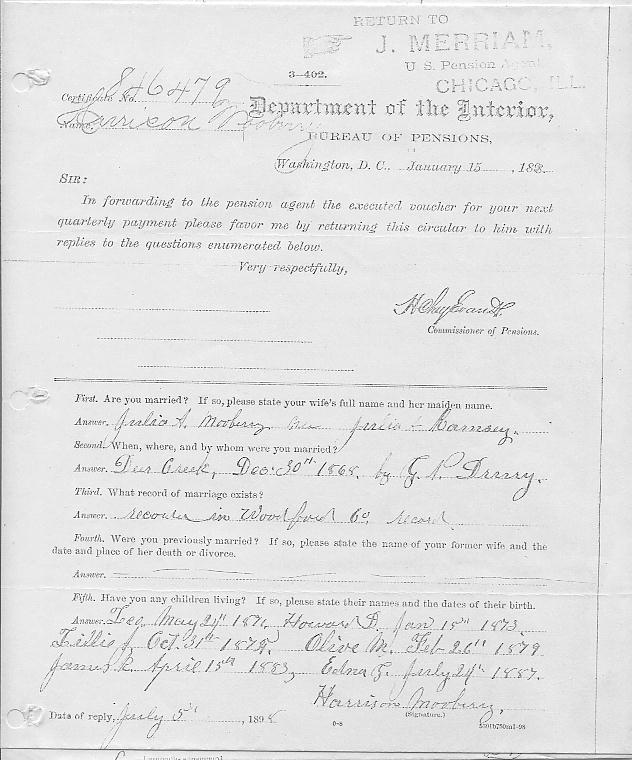 RETURN TO
J. MERRIAM,
U S. Pension Agent
CHICAGO, ILL.
3-402.
Certificate No. 846479
Name, Harrison Mooberry
Department of the Interior,
BUREAU OF PENSIONS,
Washington, D. C., January 15, 1898.
SIR:
In forwarding to the pension agent the executed voucher for your next
quarterly payment please favor me by returning this circular to him with
replies to the questions enumerated below.
Very respectfully,
H Clay Evans
Commissioner of Pensions.
First. Are you married? If so, please state your wife's full name and her maiden name.
Answer. Julia A. Mooberry Julia Ramsey.
Second. When, where, and by whom were you married?
Answer. Deer Creek, Dec. 30th 1868. by G. N. Drury.
Third. What record of marriage exists?
Answer. recorder in Woodford Co. record
Fourth. Were you previously married? If so, please state the name of your former wife and the
date and place of her death or divorce.
Answer.
Fifth. Have you any children living? If so, please state their names and the dates of their birth.
Answer. Leo, May 24th Howard D. Jan 15th 1873.
Lillie J. Oct. 31th Olive M. Feb 26th 1879
James R. April 15th 1883, Edna Z. July 24th 1887.
Harrison Mooberry.
(Signature.)
Date of reply, July 5th, 1898
6-8